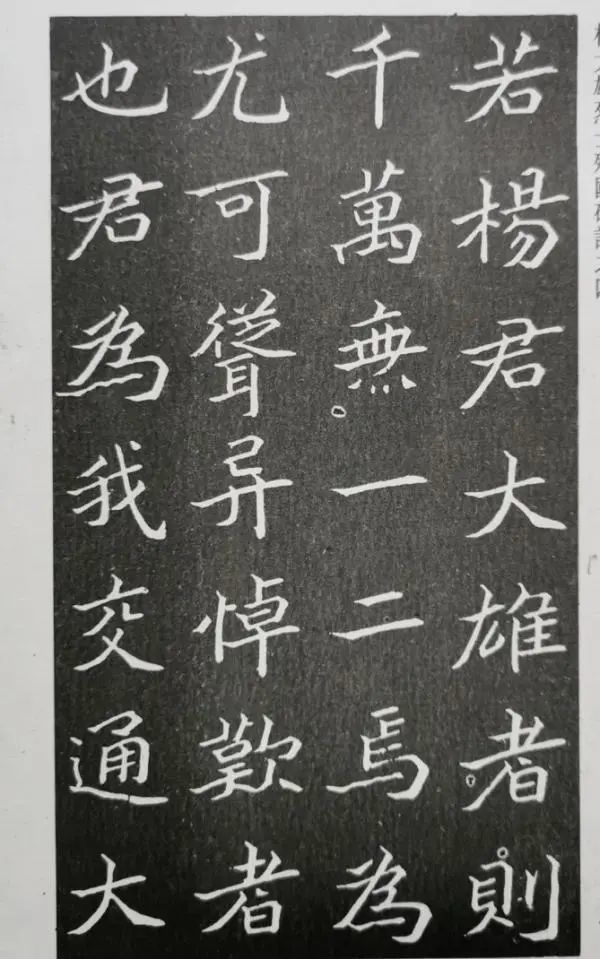 若楊君大雄者則
千萬無一二焉為
尤可聳异悼歎者
也君為我交通大